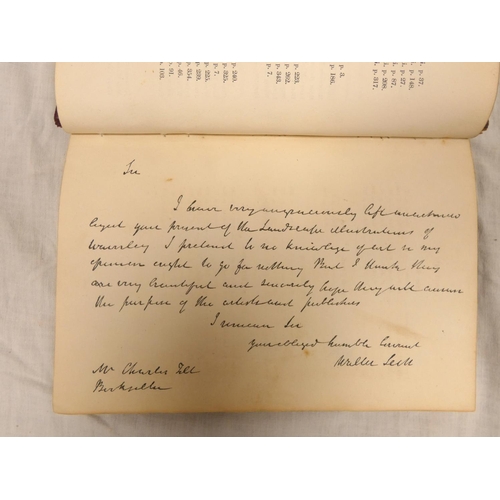 l. p. 37.
l. p. 148.
l. p. 27.
l. p. 87.
l. p. 208.
l. p. 317.
p. 3.
p. 186.
p. 223.
p. 262.
p. 343.
p. 7.
p. 240.
p. 325.
p. 7.
p. 225.
p. 299.
p. 354.
p. 46.
p. 91.
p. 103.
Sir
I have very ungraciously left unacknow
leged your present of the Landscape illustrations of
Waverley I pretend to no knowledge of art so my
opinion ought to go for nothing But I think they
are very beautiful and sincerely hope they will answer
the purpose of the artists and publishers
I remain Sir
your obliged humble Servant
Walter Scott
Mr Charles Tilt
Bookseller